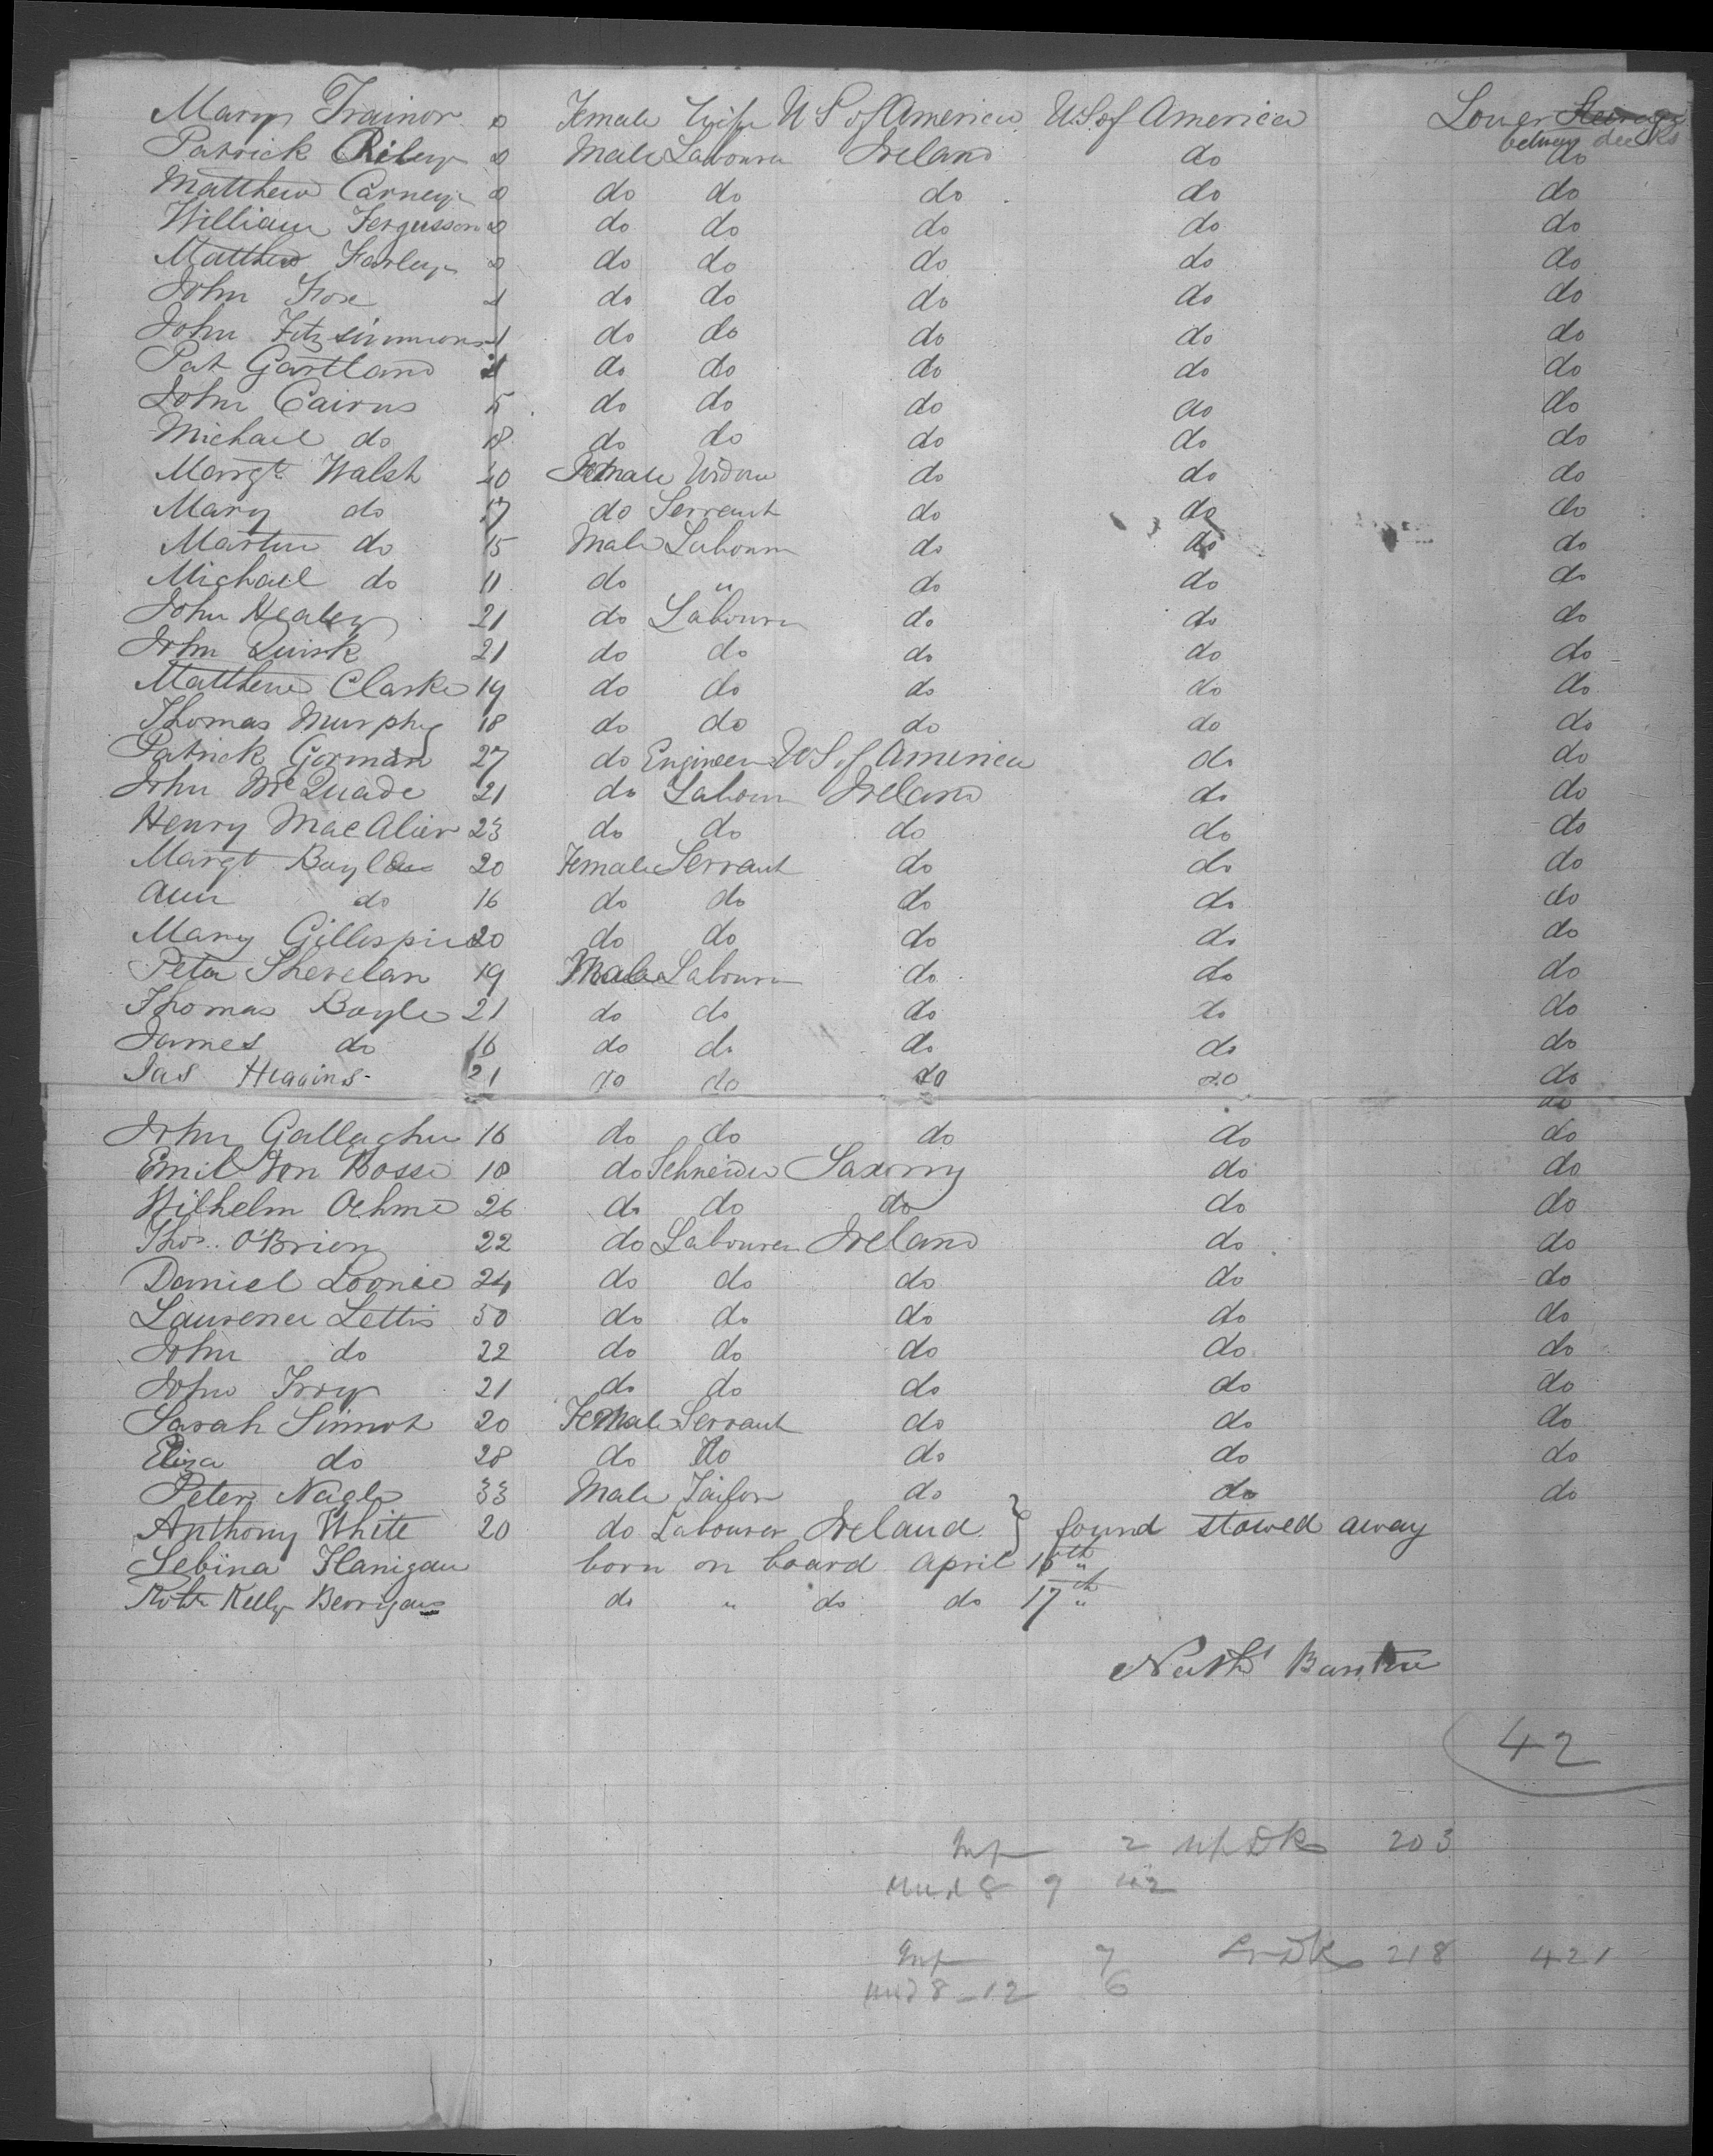 Mary Trainor Female Wife U S of America U.S of America Lower Steerage
between decks
Patrick Riley Male Labourer Ireland do do
Matthew Carney do do do do do
William Fergusson do do do do do
Matthew Farley do do do do do
John Fox do do do do do
John Fitzsimmons do do do do do
Pat Gartland do do do do do
John Cairns do do do do do
Michael do 18 do do do do do
Margt Walsh 40 Female Widow do do do
Mary do 17 do Servant do do do
Martin do 15 Male Labourer do do do
Michael do 11 do " do do do
John Healey 21 do Labourer do do do
John Quirk 21 do do do do do
Matthew Clarke 19 do do do do do
Thomas Murphy 18 do do do do do
Patrick Gorman 27 do Engineer U S of America do do
John McQuade 21 do Labourer Ireland do do
Henry MacAlier 23 do do do do do
Margt Boylan 20 Female Servant do do do
Ann do 16 do do do do do
Mary Gillespie 20 do do do do do
Peter Shevelan 19 Male Labourer do do do
Thomas Boyle 21 do do do do do
James do 16 do do do do do
Jas Higgins 21 do do do do do
do
John Gallagher 16 do do do do do
Emil Von Bosse 18 do Schneider Saxony do do
Wilhelm Oehme 26 do do do do do
Thos. O'Brien 22 do Labourer Ireland do do
Daniel Loonie 24 do do do do do
Laurence Lettis 50 do do do do do
John do 22 do do do do do
John Troy 21 do do do do do
Sarah Sinnot 20 Female Servant do do do
Eliza do 28 do do do do do
Peter Nagle 33 Male Tailor do do do
Anthony White 20 do Labourer Ireland } found stowed away
Sebina Flanigan born on board April 16th "
Kelly Berrigan do " do do 17th "
Nath
42
2 up Dk 203
und 8 9 42
7 Lr Dk 218 421
und 8 - 12 6